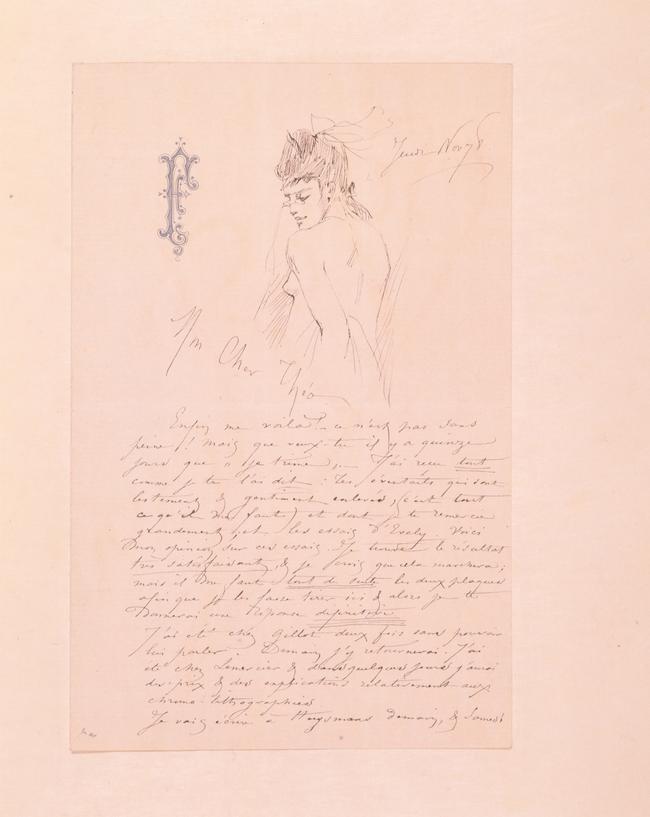 F
Jeudi Nov 78
Mon Cher Théo
Enfin me voilà! ce n'est pas sans
peine! Mais que veux-tu il y a quinze
jours que "je traine". J'ai reçu tout
comme je te l'ai dit: Les éventails qui sont
lestement & gentiment enlevés, (c'est tout
ce qu'il me faut) et dont je te remercie
grandement, et les essais d'Evely. Voici
mon opinion sur ces essais. Je trouve le résultat
très satisfaisant, & je crois que cela marchera;
mais il me faut tout de suite les deux plaques
afin que je les fasse tirer ici & alors je te
donnerai une réponse définitive
J'ai été chez Gillot deux fois sans pouvoir
lui parler. Demain j'y retournerai. J'ai
été chez Lemercier & dans quelques jours j'aurai
des prix & des explications relativement aux
chromo-lithographies
Je vais écrire à Huysmans demain, & Samedi